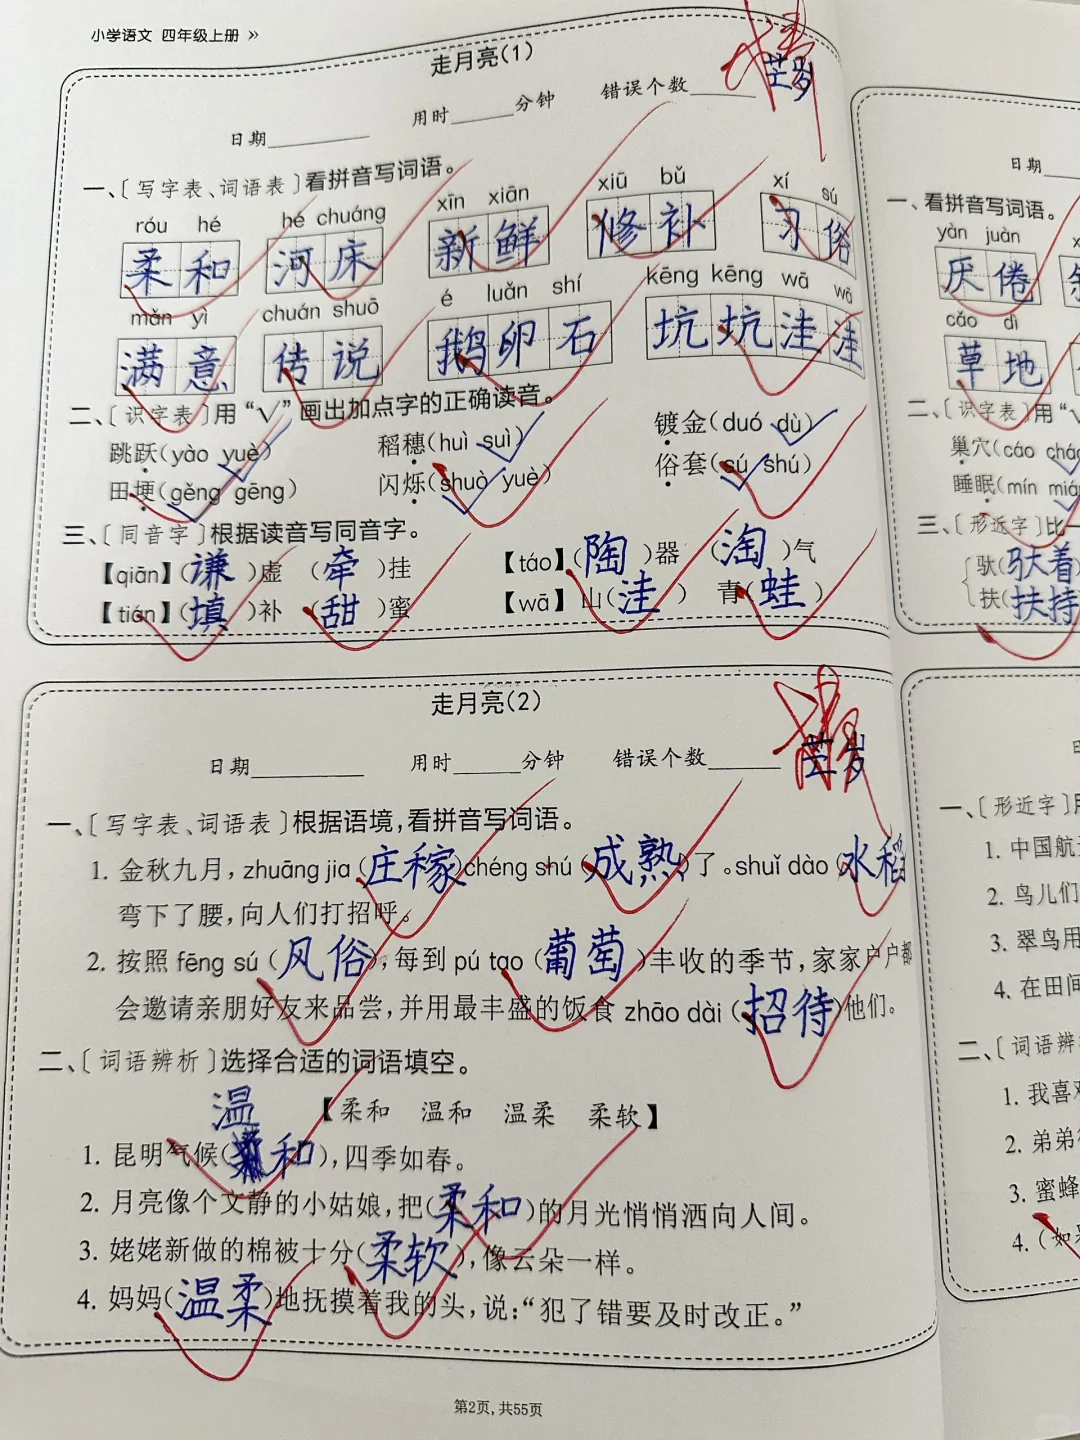 小学语文 四年级上册 »
走月亮(1)
芸岁
日期 用时 分钟 错误个数
一、〔写字表、词语表〕看拼音写词语。
róu hé hé chuáng xīn xiān xiū bǔ xí sú
柔和 河床 新鲜 修补 习俗
mǎn yì chuán shuō é luǎn shí kēng kēng wā wā
满意 传说 鹅卵石 坑坑洼洼
二、〔识字表〕用“√”画出加点字的正确读音。
跳跃(yào yuè) 稻穗(huì suì) 镀金(duó dù)
田埂(gěng gēng) 闪烁(shuò yuè) 俗套(sú shú)
三、〔同音字〕根据读音写同音字。
【qiān】(谦)虚 (牵)挂 【táo】(陶)器 (淘)气
【tián】(填)补 (甜)蜜 【wā】山(洼) 青(蛙)
走月亮(2)
芸岁
日期 用时 分钟 错误个数
一、〔写字表、词语表〕根据语境,看拼音写词语。
1. 金秋九月,zhuāng jia (庄稼)chéng shú (成熟)了。shuǐ dào (水稻
弯下了腰,向人们打招呼。
2. 按照 fēng sú (风俗),每到 pú tao (葡萄)丰收的季节,家家户户都
会邀请亲朋好友来品尝,并用最丰盛的饭食 zhāo dài (招待)他们。
二、〔词语辨析〕选择合适的词语填空。
【柔和 温和 温柔 柔软】
温
1. 昆明气候(和),四季如春。
2. 月亮像个文静的小姑娘,把(柔和)的月光悄悄洒向人间。
3. 姥姥新做的棉被十分(柔软),像云朵一样。
4. 妈妈(温柔)地抚摸着我的头,说:“犯了错要及时改正。”
第2页,共55页
日期
一、看拼音写词语。
yàn juàn
厌倦
cǎo dì
草地
二、〔识字表〕用“√
巢穴(cáo chá
睡眠(mín mián
三、〔形近字〕比一
驮(驮着
扶(扶持
一、〔形近字〕用
1. 中国航
2. 鸟儿们
3. 翠鸟用
4. 在田间
二、〔词语辨
1. 我喜欢
2. 弟弟
3. 蜜蜂
4. (如果